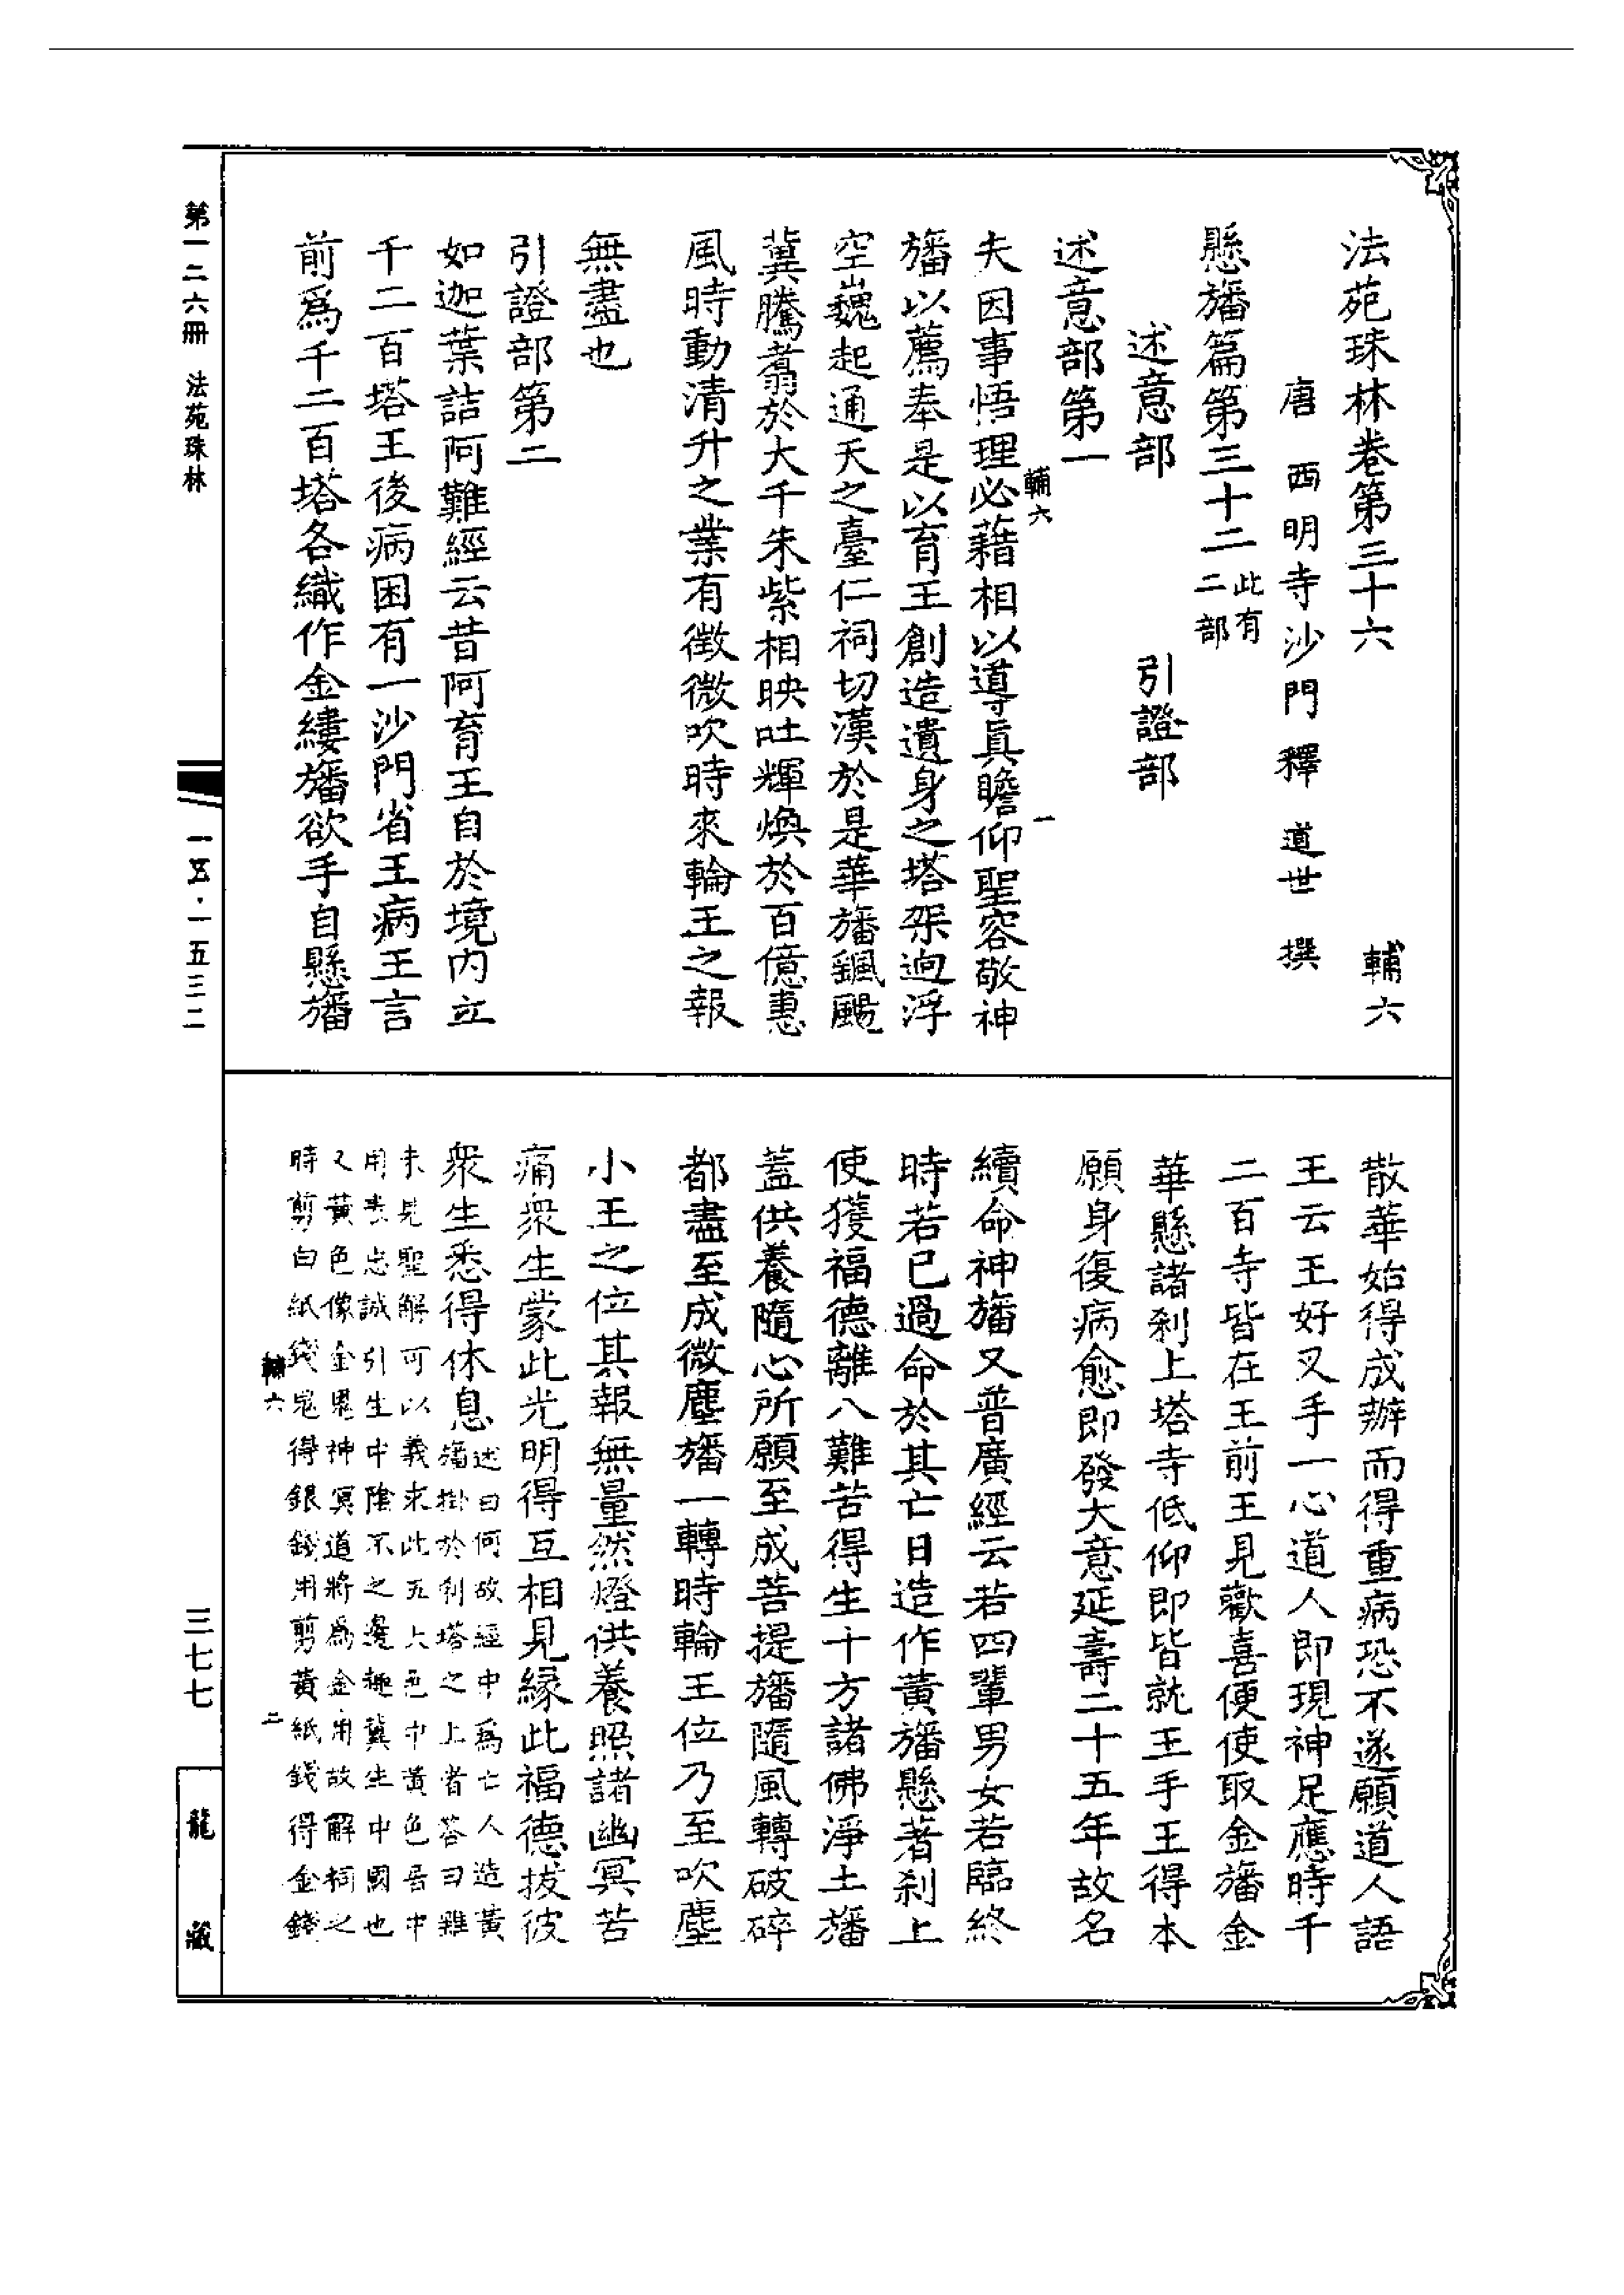 法苑珠林卷第三十六　輔六
唐西明寺沙門釋道世撰
懸旛篇第三十二此有二部
述意部　引證部
述意部第一
輔六　一
夫因事悟理必藉相以導真瞻仰聖容敬神
旛以薦奉是以育王創造遺身之塔架迥浮
空巍起通天之臺仁祠切漢於是華旛飄颺
冀騰翥於大千朱紫相映吐輝煥於百億惠
風時動清升之業有徵微吹時來輪王之報
無盡也
引證部第二
如迦葉詰阿難經云昔阿育王自於境內立
千二百塔王後病困有一沙門省王病王言
前爲千二百塔各織作金縷旛欲手自懸旛
散華始得成辦而得重病恐不遂願道人語
王云王好叉手一心道人即現神足應時千
二百寺皆在王前王見歡喜便使取金旛金
華懸諸剎上塔寺低仰即皆就王手王得本
願身復病愈即發大意延壽二十五年故名
續命神旛又普廣經云若四輩男女若臨終
時若已過命於其亡日造作黃旛懸著剎上
使獲福德離八難苦得生十方諸佛淨土旛
蓋供養隨心所願至成菩提旛隨風轉破碎
都盡至成微塵旛一轉時輪王位乃至吹塵
小王之位其報無量然燈供養照諸幽冥苦
痛衆生蒙此光明得互相見緣此福德拔彼
衆生悉得休息述曰何故經中爲亡人造黃
旛掛於剎塔之上者答曰雖
未見聖解可以義求此五大色中黃色居中
用表忠誠引生中陰不之邊趣冀生中國也
又黃色像金鬼神冥道將爲金用故解祠之
時剪白紙錢鬼得銀錢用剪黃紙錢得金錢
輔六　二
第一二六冊　法苑珠林
一五·一五三二
三七七
龍藏